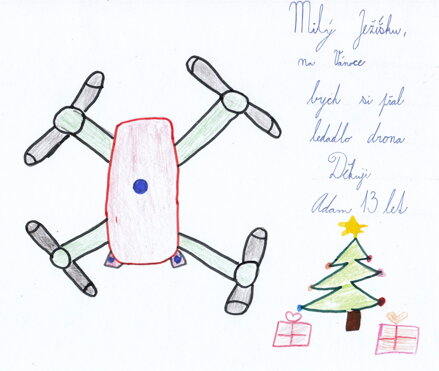 Milý Ježíšku,
na Vánoce
bych si přál
letadlo drona
Děkuji
Adam 13 let